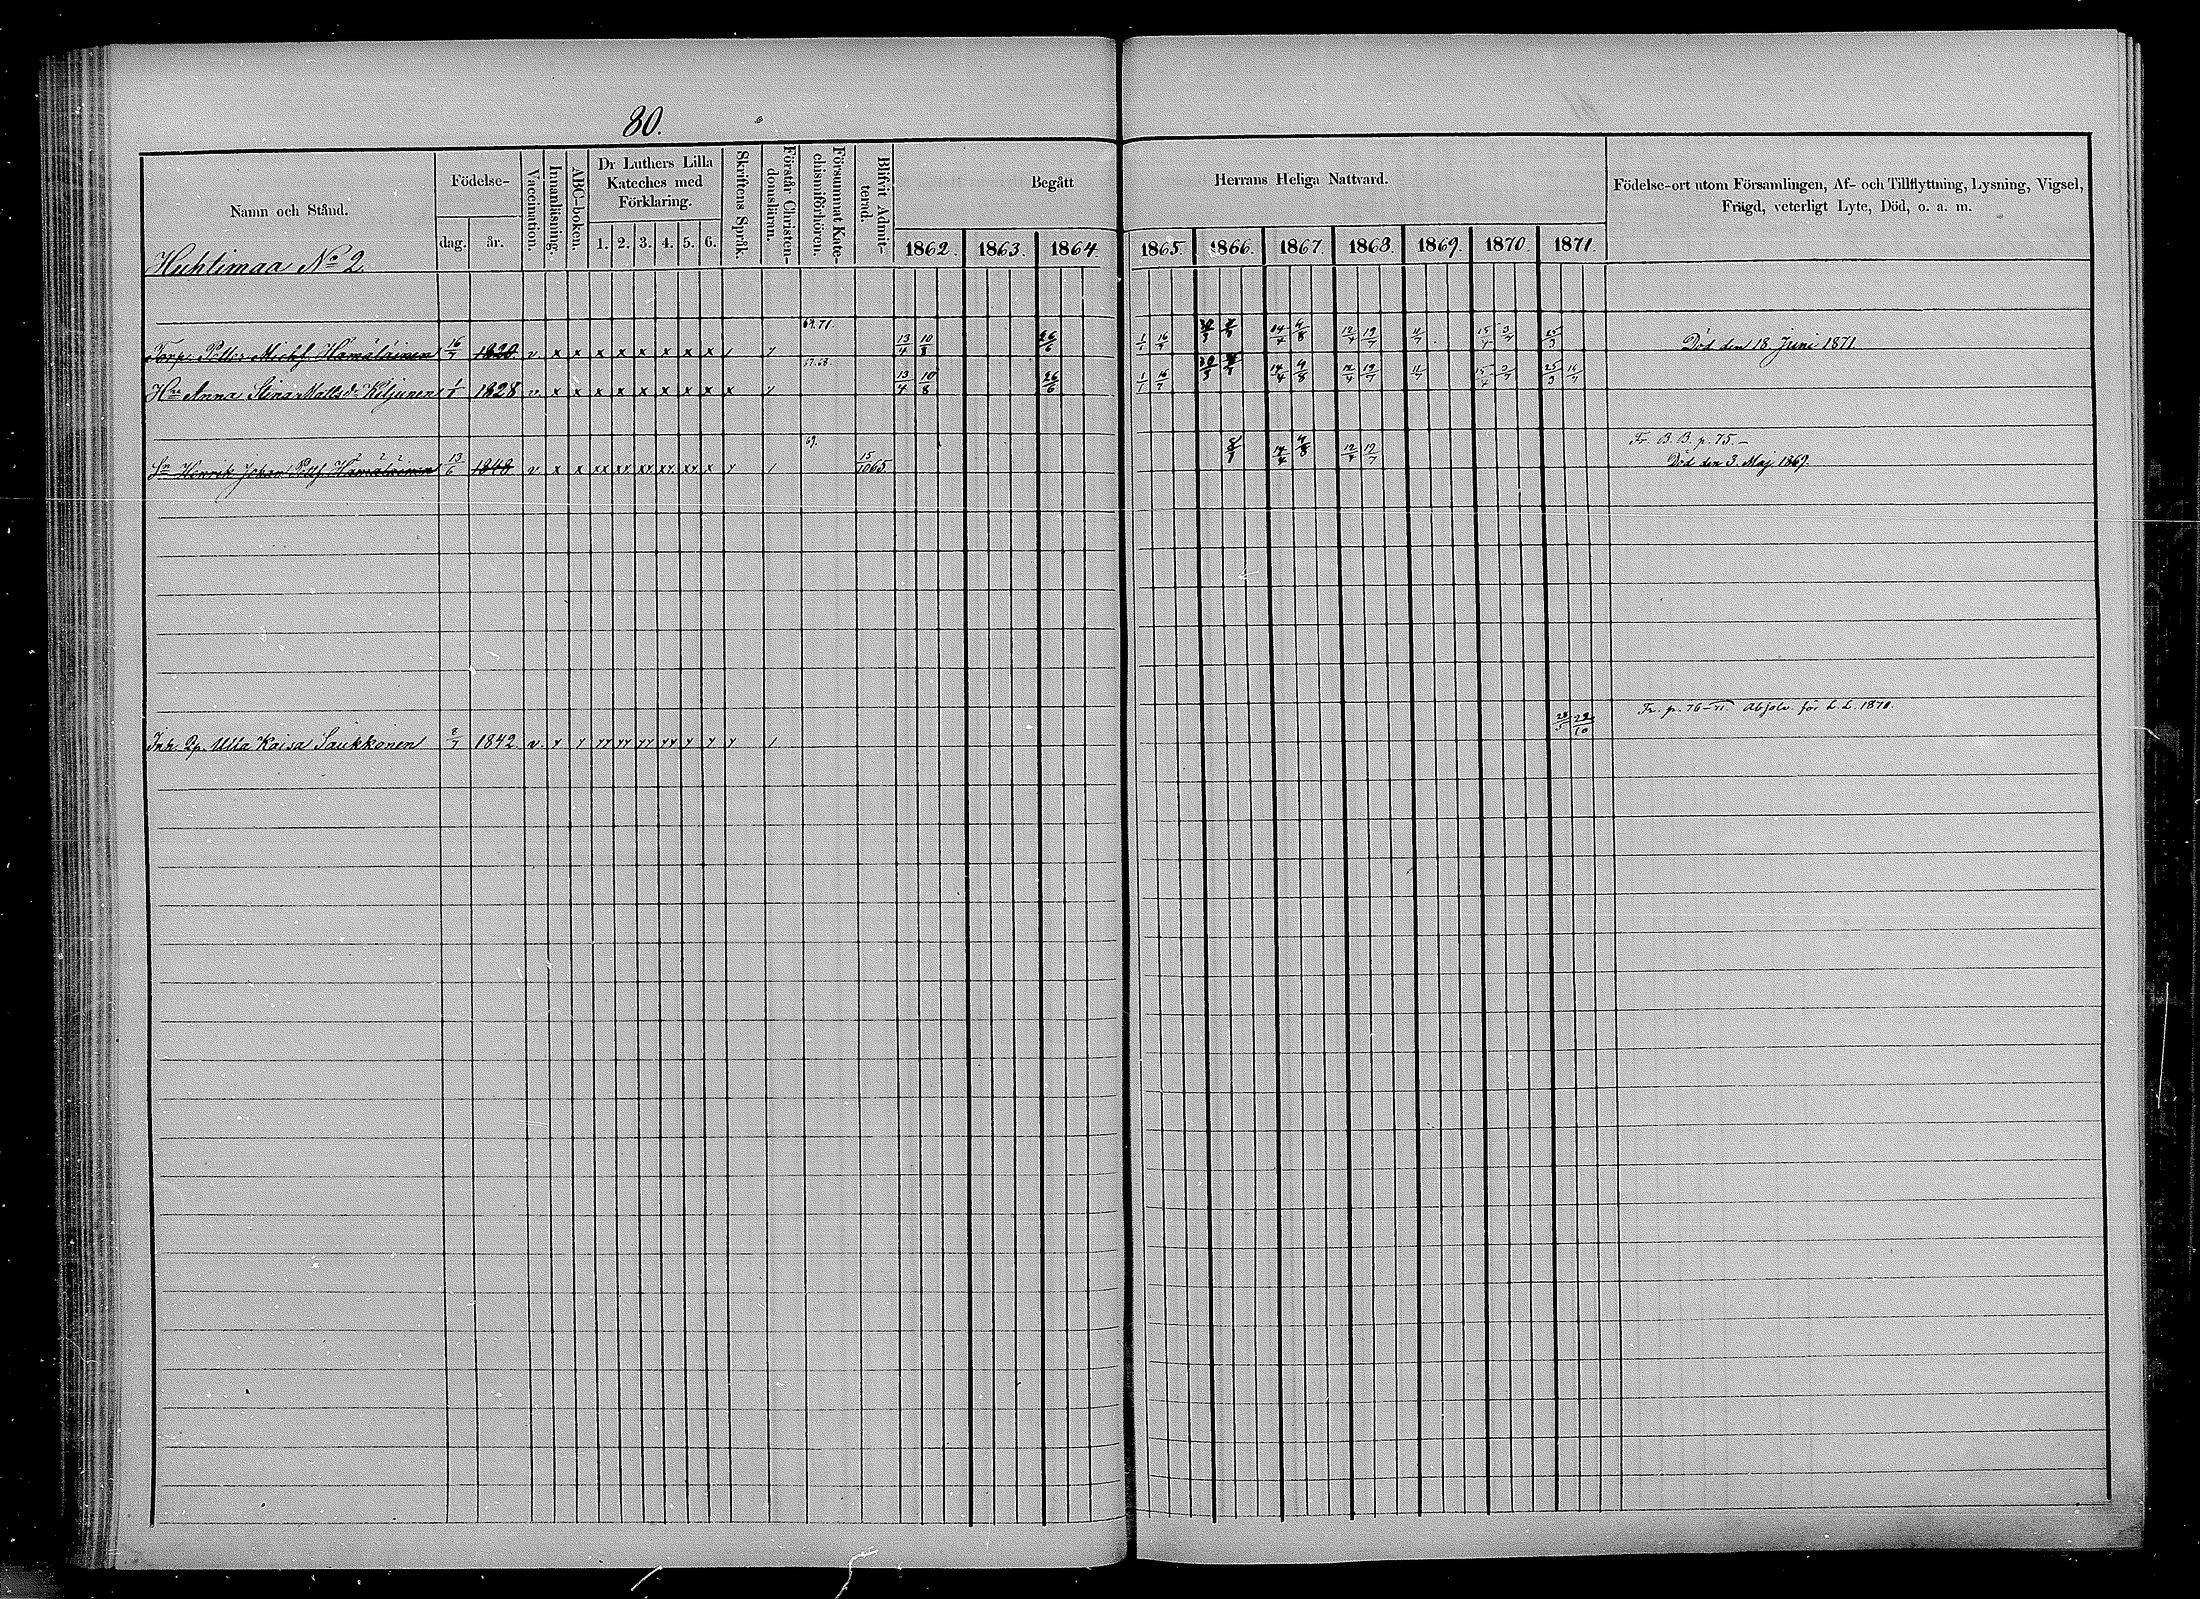 80.
Namn och Stånd.
Födelse-
dag. år.
Vaccination.
Innanläsning.
ABC-boken.
Dr Luthers Lilla
Kateches med
Förklaring.
1. 2. 3. 4. 5. 6.
Skriftens Språk.
Förstår Christen-
domsläran.
Försummat Kate-
chismiförhören.
Blifvit Admit-
terad.
Begått Herrans Heliga Nattvard.
1862. 1863. 1864. 1865. 1866. 1867. 1868. 1869. 1870. 1871.
Födelse-ort utom Församlingen, Af- och Tillflyttning, Lysning, Vigsel,
Frägd, veterligt Lyte, Död, o. a. m.
Huhtimaa No 2.
69.71.
Torp. Petter Michf. Hämäläinen 16/7 1820 v x x x x x x x x 13/4 10/8 26/6 1/1 16/7 12/4 19/7 11/7 15/4 3/7 25/3 Död den 18 Juni 1871.
57.68.
Hu Anna Stina Mattsdr Kiljunen 1/1 1828 v. x x x x x x x x x 13/4 10/8 26/6 1/1 16/7 14/4 4/8 12/4 19/7 11/7 15/4 3/7 25/3 15/7
69. Fr. B. B. p. 75.-
Sn Henrik Johan Pettf. Hämäläinen 13/6 1848 v x x xx xx xx xx xx x 15/10 65 14/4 4/8 12/4 Död den 3. Maj 1869.
Fr. p. 76-71. Absolv. för L. L. 1870.
Inh. Qp. Ulla Kaisa Saukkonen 2/7 1842 v.